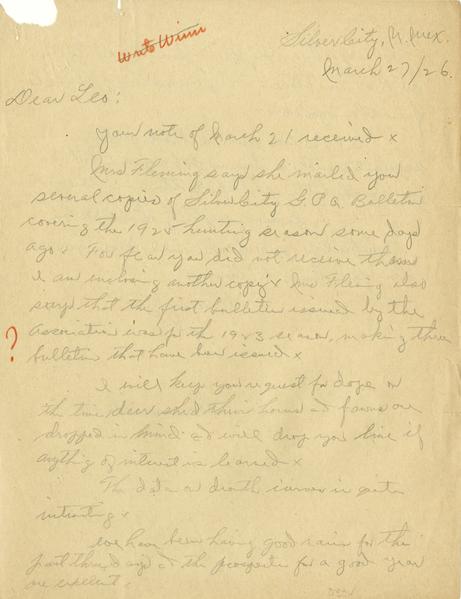 Write Winn
Silver City, N. Mex.
March 27/26.
Dear Leo:
Your note of March 21 received x
Mrs Fleming says she mailed you
several copies of Silver City G P A Bulletin
covering the 1925 hunting season some days
ago x For fear you did not receive them
I am inclosing another copy x Mrs Fleming also
says that the first bulletin issued by the
Association was for the 1923 season, making three
?
bulletin that have been issued x
I will keep your request for dope on
the time deer shed their horns and fawns are
dropped in mind and will drop you line if
anything of interest is learned x
The data on death curves is quite
intresting x
We have been having good rains for the
past three days and the prospects for a good year
are excellent.